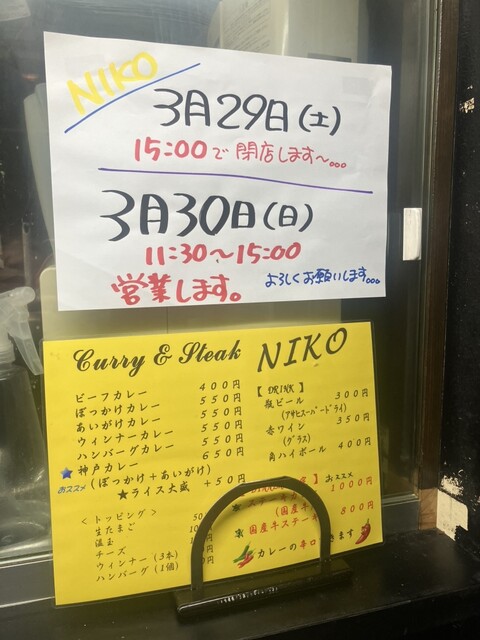 NIKO
3月29日(土)
15:00で閉店します〜...
3月30日(日)
11:30〜15:00
営業します。 よろしくお願いします...
Curry & Steak NIKO
ビーフカレー 400円
ぼっかけカレー 550円
あいがけカレー 550円
ウィンナーカレー 550円
ハンバーグカレー 550円
★神戸カレー 650円
おススメ (ぼっかけ+あいがけ)
★ライス大盛 +50円
<トッピング>
生たまご
温玉
チーズ
ウィンナー(3本)
ハンバーグ(1個)
【 DRINK 】
瓶ビール 300円
(アサヒスーパードライ)
赤ワイン 350円
(グラス)
角ハイボール 400円
おススメ
1000円
(国産牛
国産牛ステー 800円
カレーの辛口 きます